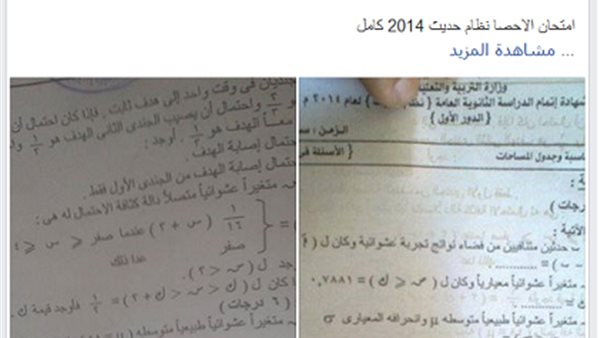 امتحان الاحصا نظام حديث 2014 كامل
... مشاهدة المزيد
وزارة التربية والتعليم
شهادة إتمام الدراسة الثانوية العامة { نظام حديث } لعام ٢٠١٤ م
{ الدور الأول }
الزمن :
{ الأسئلة فى
اسبة وجدول المساحات
درجات )
الآتية :
حدثين متنافيين من فضاء نواتج تجربة عشوائية وكان ل ( أ
متغيراً عشوائياً معيارياً وكان ل ( ص ⩽ ك ) = ٠,٧٨٨١
متغيراً عشوائياً طبيعياً متوسطه μ وانحرافه المعيارى σ
جنديان فى وقت واحد إلى هدف ثابت . فإذا كان احتمال أن
٢/٣ واحتمال أن يصيب الجندى الثانى الهدف هو ١/٢
معاً الهدف هو ١/٣ . أوجد :
احتمال إصابة الهدف .
احتمال إصابة الهدف من الجندى الأول فقط .
متغيراً عشوائياً متصلاً دالة كثافة الاحتمال له هى :
١/١٦ ( س + ٢ ) عندما صفر ⩽ س ⩽
صفر عدا ذلك
جد ل ( ص < ٢ ) .
كان ل ( ك < س < ك + ٢ ) = ١/٢ فأوجد قيمة ك .
( ٦ درجات )
متغيراً عشوائياً طبيعياً متوسطه μ وانحرافه